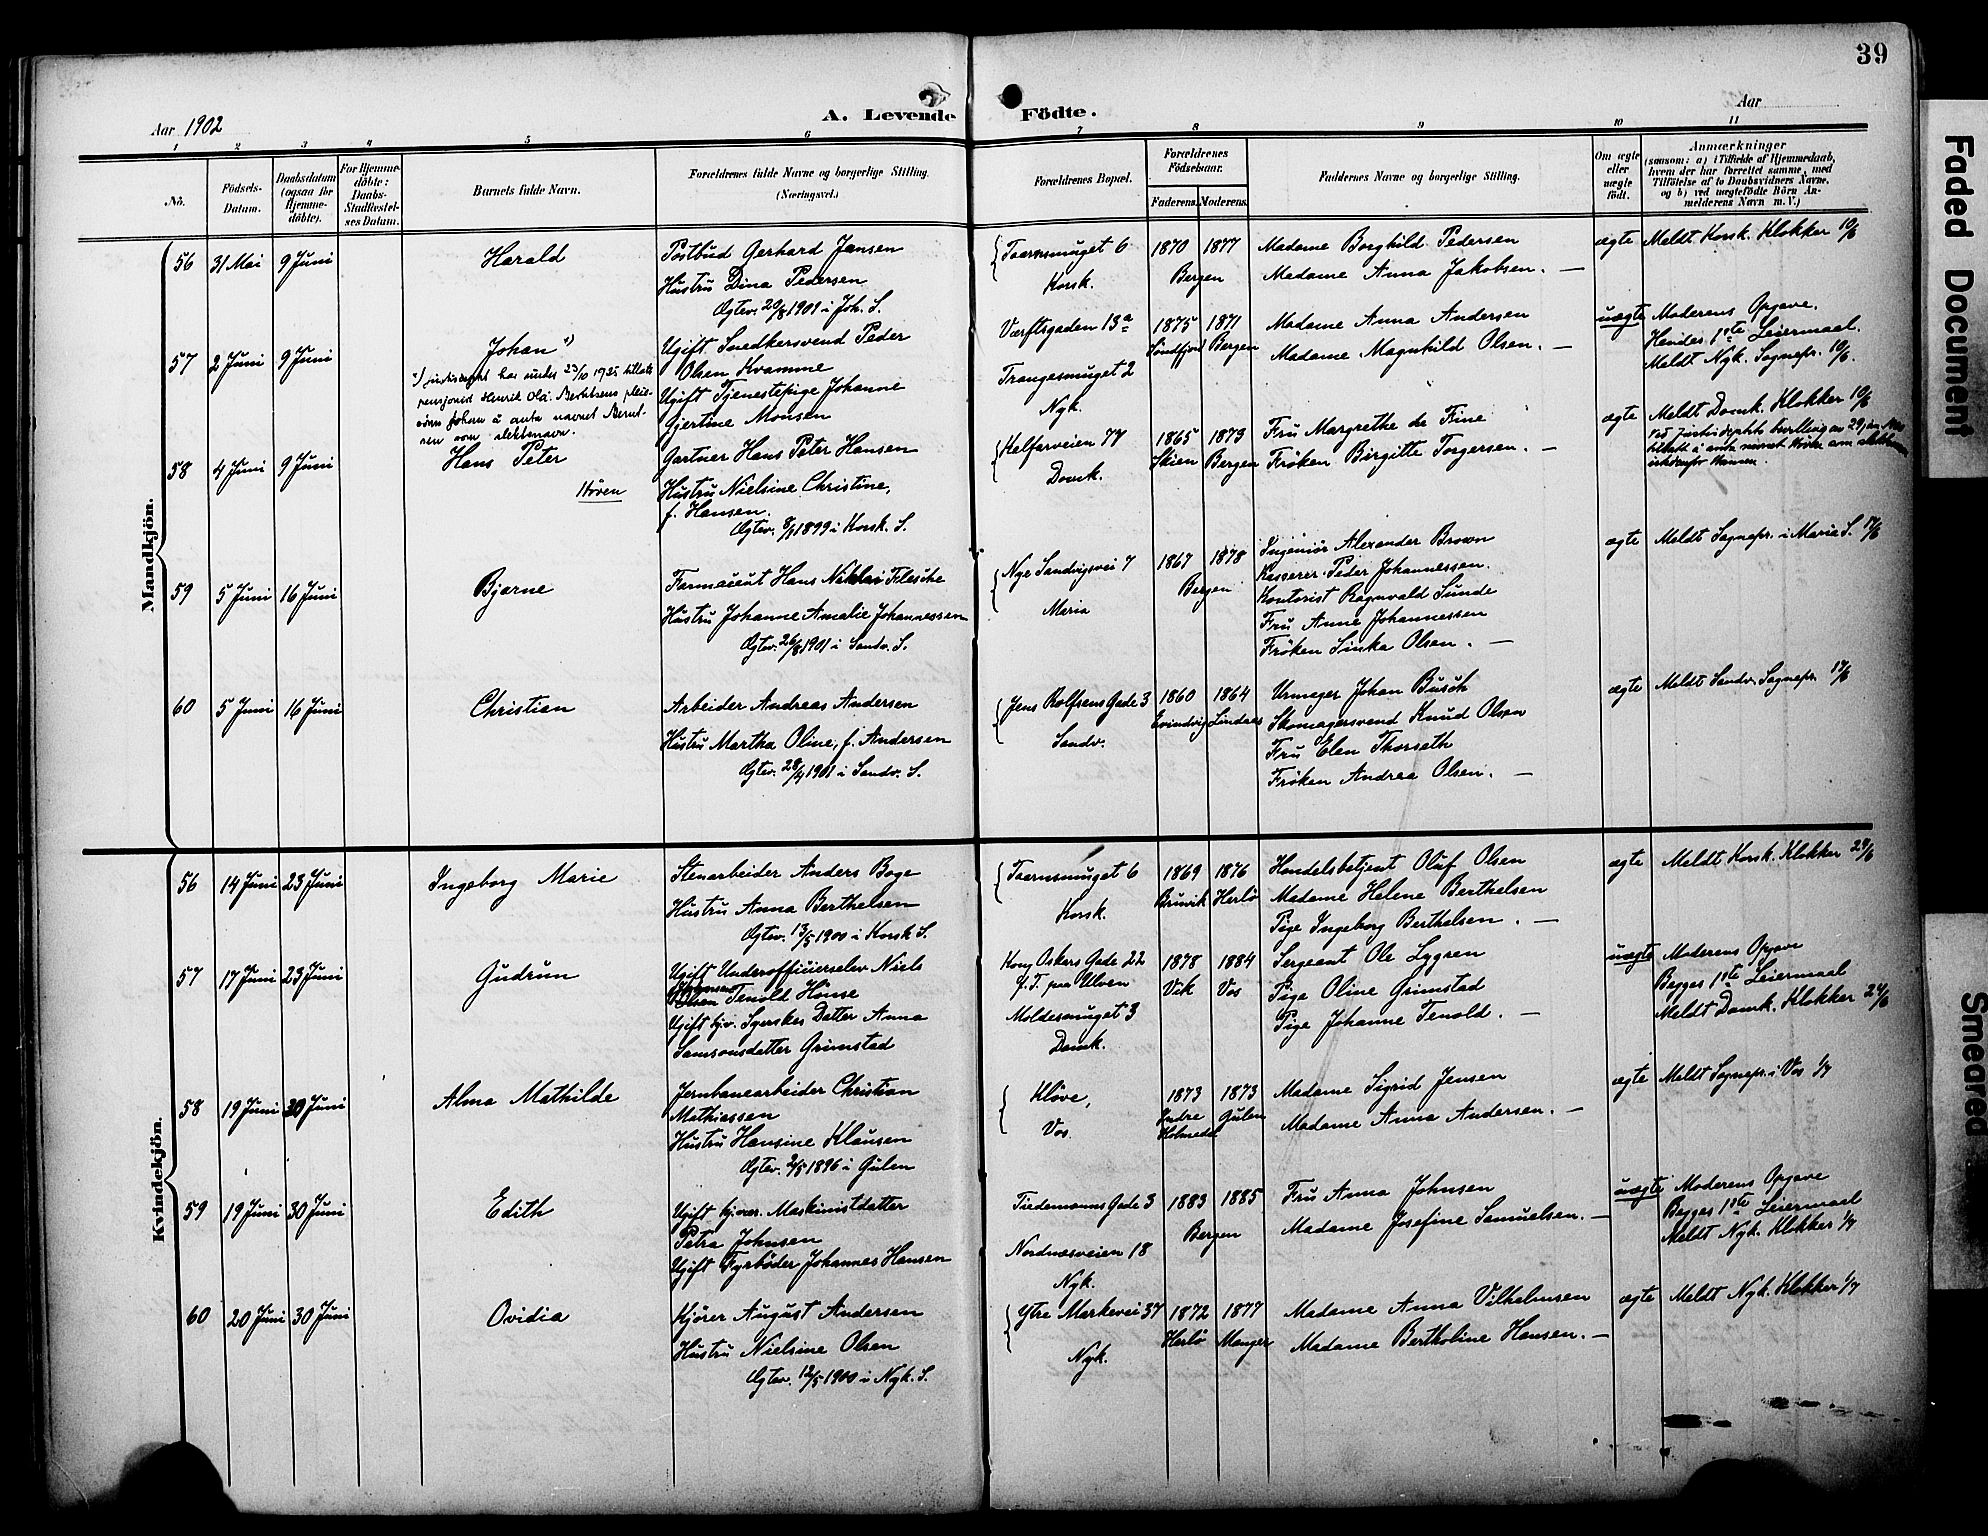 39
Aar 1902
A. Levende Födte.
Aar
1 2 3 4 5 6 7 8 9 10 11
No.
Födsels-
Datum.
Daabsdatum
(ogsaa for
Hjemme-
döbte).
For Hjemme-
döbte:
Daabs-
Stadfæstel-
ses Datum.
Barnets fulde Navn.
Forældrenes fulde Navne og borgerlige Stilling.
(Næringsvei.)
Forældrenes Bopæl.
Forældrenes
Födselsaar.
Faderens. Moderens.
Faddernes Navne og borgerlige Stilling.
Om ægte
eller
uægte
födt.
Anmærkninger
(saasom: a) i Tilfælde af Hjemmedaab,
hvem der har forrettet samme, med
Tilföielse af to Daabsvidners Navne,
og b) ved uægtefödte Börn An-
melderens Navn m. V.)
Mandkjön.
56 31 Mai 9 Juni Harald
Postbud Gerhard Jansen
Hustru Dina Pedersen
Ogtev. 20/8 1901 i Joh. S.
Taarnsmuget 6
Korsk.
1870 1877
Bergen
Madame Borghild Pedersen
Madame Anna Jakobsen. —
ægte
Meldt Korsk. Klokker 10/6
57 2 Juni 9 Juni Johan
pensjonist Henrik Old. Berntsens pleie-
sønn Johan å anta navnet Bernt-
sen som slektsnavn.
Ugift Snedkersvend Peder
Olsen Kvamme
Ugift Tjenestepige Johanne
Gjertine Monsen
Værftsgaden 13a
Trangesmuget 2
Nyk.
1875 1871
Söndfjord Bergen
Madame Anna Andersen
Madame Magnhild Olsen. —
uægte
Moderens Opgave.
Hendes 1ste Leiermaal.
Meldt Nyk. Sognepr. 10/6.
58 4 Juni 9 Juni Hans Peter
Høven
Gartner Hans Peter Hansen
Hustru Nielsine Christine,
f. Hansen.
Ogtev. 8/1 1899 i Korsk. S.
Kalfarveien 77
Domk.
1865 1873
Skien Bergen
Fru Margrethe de Fine
Fröken Birgitte Torgersen. —
ægte
Meldt Domk. Klokker 10/6
59 5 Juni 16 Juni Bjarne
Farmaceut Hans Nikolai Flesche
Hustru Johanne Amalie Johannessen
Ogtev. 26/8 1901 i Sandv. S.
Nye Sandvigsvei 7
Maria
1867 1878
Bergen
Ingeniör Alexander Brown
Kasserer Peder Johannessen.
Kontorist Ragnvald Sunde
Fru Anne Johannessen
Fröken Sinka Olsen. —
ægte
Meldt Sognepr. i Maria S. 17/6
60 5 Juni 16 Juni Christian
Arbeider Andreas Andersen
Hustru Martha Oline, f. Andersen
Ogtev. 28/4 1901 i Sandv. S.
Jens Rolfsens Gade 3
Sandv.
1860 1864
Evindvig Lindaas
Urmager Johan Busch
Skomagersvend Knud Olsen
Fru Elen Thorseth
Fröken Andrea Olsen. —
ægte
Meldt Sandv. Sognepr. 17/6
Kvindekjön.
56 14 Juni 23 Juni Ingeborg Marie
Stenarbeider Anders Boge
Hustru Anna Berthelsen
Ogtev. 13/5 1900 i Korsk S.
Taarnsmuget 6
Korsk.
1869 1876
Bruvik Herlö
Handelsbetjent Oluf Olsen
Madame Helene Berthelsen
Pige Ingeborg Berthelsen. —
ægte
Meldt Korsk. Klokker 23/6
57 17 Juni 23 Juni Gudrun
Ugift Underofficerselev Niels
Tenold Hönse
Ugift hjv. Syerskes Datter Anna
Samsonsdatter Grimstad
Kong Oskars Gade 22
f. T. paa Ulven
Moldesmuget 3
Domk.
1878 1884
Vik Vos
Sergeant Ole Lygren
Pige Oline Grimstad
Pige Johanne Tenold. —
uægte
Moderens Opgave
Begges 1ste Leiermaal
Meldt Domk. Klokker 24/6
58 19 Juni 30 Juni Alma Mathilde
Jernbanearbeider Christian
Mathiassen
Hustru Hansine Klausen
Ogtev. 2/5 1896 i Gulen
Klöve,
Vos.
1873 1873
Indre Gulen
Holmedal
Madame Sigrid Jensen
Madame Anna Andersen. —
ægte
Meldt Sognepr. i Vos 1/7
59 19 Juni 30 Juni Edith
Ugift hjvær. Maskinistdatter
Petra Johnsen
Ugift Fyrböder Johannes Hansen
Tiedemanns Gade 3
Nordnæsveien 18
Nyk.
1883 1885
Bergen
Fru Anna Johnsen
Madame Josefine Samuelsen. —
uægte
Moderens Opgave
Begges 1ste Leiermaal
Meldt Nyk. Klokker 1/7
60 20 Juni 30 Juni Ovidia
Kjörer August Andersen
Hustru Nielsine Olsen
Ogtev. 12/5 1900 i Nyk. S.
Ytre Markevei 37
Nyk.
1872 1877
Herlö Manger
Madame Anna Vilhelmsen
Madame Bertholine Hansen. —
ægte
Meldt Nyk. Klokker 1/7
Faded Document
Smeared